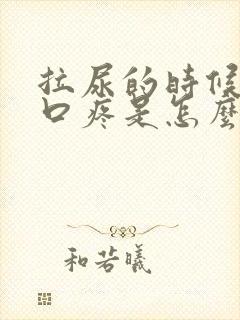 拉尿的時候
口疼是怎麼
和若曦